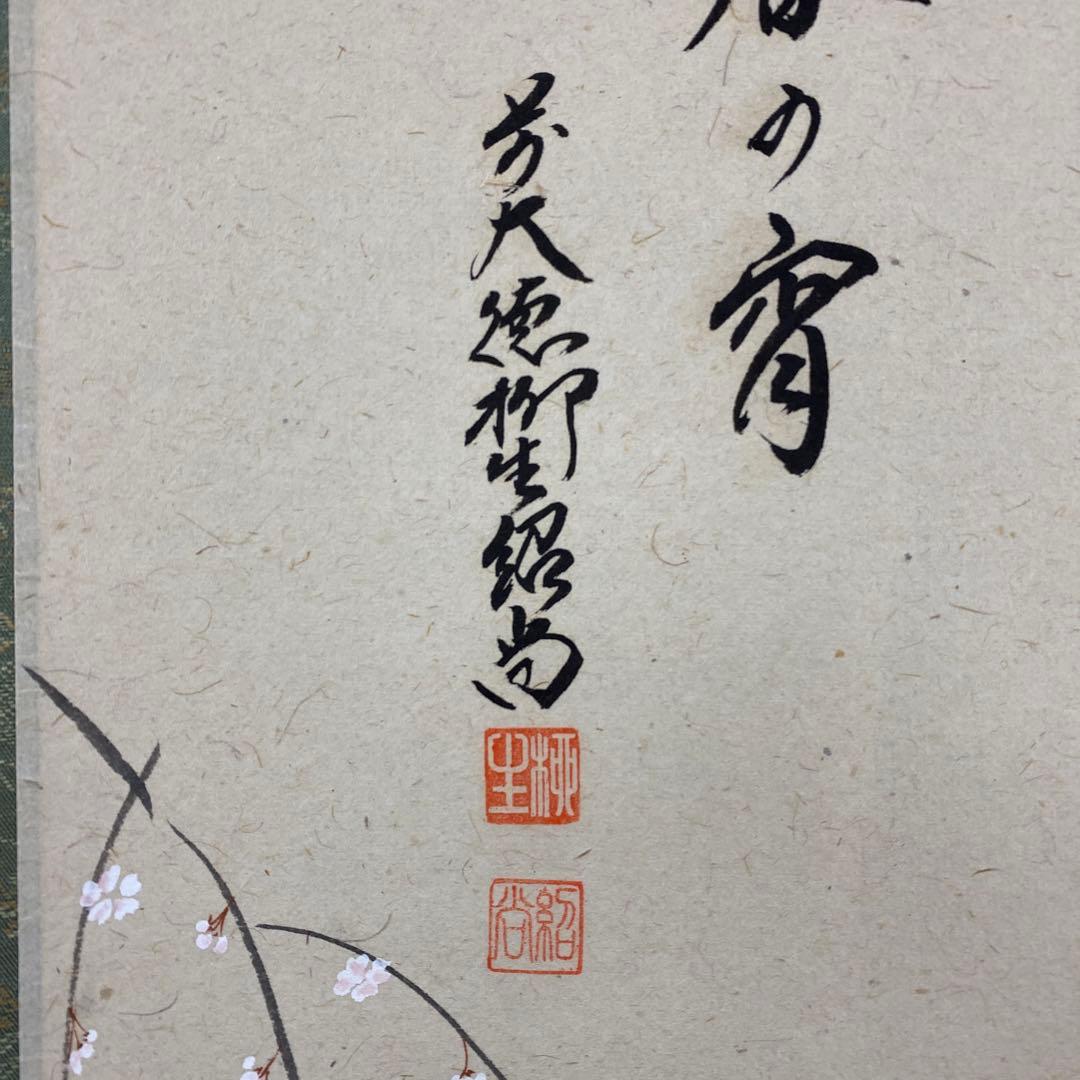 春の宵
前大徳柳生紹尚
柳生
紹尚